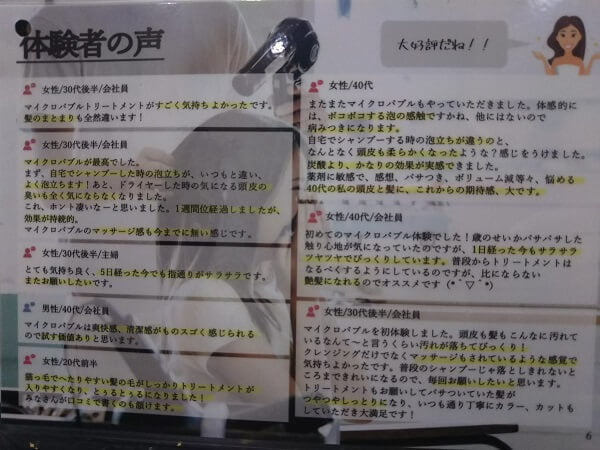 体験者の声
大好評だね！！
女性/30代後半/会社員
マイクロバブルトリートメントがすごく気持ちよかったです。
髪のまとまりも全然違います！
女性/30代後半/会社員
マイクロバブルが最高でした。
まず、自宅でシャンプーした時の泡立ちが、いつもと違い、
よく泡立ちます！あと、ドライヤーした時の気になる頭皮の
臭いも全く気にならなくなりました。
これ、ホント凄いなーと思いました。1週間位経過しましたが、
効果が持続的。
マイクロバブルのマッサージ感も今までに無い感じです。
女性/30代後半/主婦
とても気持ち良く、5日経った今でも指通りがサラサラです。
またお願いしたいです。
男性/40代/会社員
マイクロバブルは爽快感、清潔感がものスゴく感じられる
ので試す価値ありと思います。
女性/20代前半
猫っ毛でへたりやすい髪の毛がしっかりトリートメントが
入りやすくなり、とぅるとぅるになりました！
みなさんが口コミで書くのも頷けます。
女性/40代
またまたマイクロバブルもやっていただきました。体感的に
は、ボコボコする泡の感触ですかね、他にはないので
病みつきになります。
自宅でシャンプーする時の泡立ちが違うのと、
なんとなく頭皮も柔らかくなったような？感じをうけました。
炭酸より、かなりの効果が実感できました。
薬剤に敏感で、感想、パサつき、ボリューム減等々、悩める
40代の私の頭皮と髪に、これからの期待感、大です。
女性/40代/会社員
初めてのマイクロバブル体験でした！歳のせいかパサパサした
触り心地が気になっていたのですが、1日経った今もサラサラ
ツヤツヤでびっくりしています。普段からトリートメントは
なるべくするようにしているのですが、比にならない
艶髪になれるのでオススメです（*´▽｀*）
女性/30代後半/会社員
マイクロバブルを初体験しました。頭皮も髪もこんなに汚れて
いるなんて〜と言うくらい汚れが落ちてびっくり！
クレンジングだけでなくマッサージもされているような感覚で
気持ちよかったです。普段のシャンプーじゃ落としきれないと
ころまできれいになるので、毎回お願いしたいと思います。
トリートメントもお願いしてパサついていた髪が
つやつやしっとりになり、いつも通り丁寧にカラー、カットも
していただき大満足です！
6